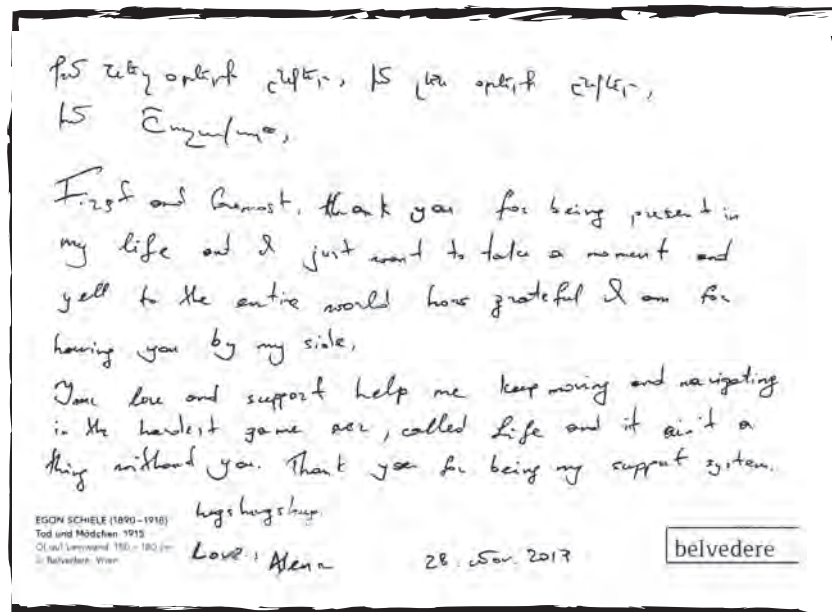 First and foremost, thank you for being present in
my life and I just want to take a moment and
yell to the entire world how grateful I am for
having you by my side.
Your love and support help me keep moving and navigating
in the hardest game ever, called Life and it ain't a
thing without you. Thank you for being my support system.
hugs hugs hugs
Love, Alena
28. Nov. 2017
EGON SCHIELE (1890–1918)
Tod und Mädchen 1915
Öl auf Leinwand 150 × 180 cm
© Belvedere, Wien
belvedere